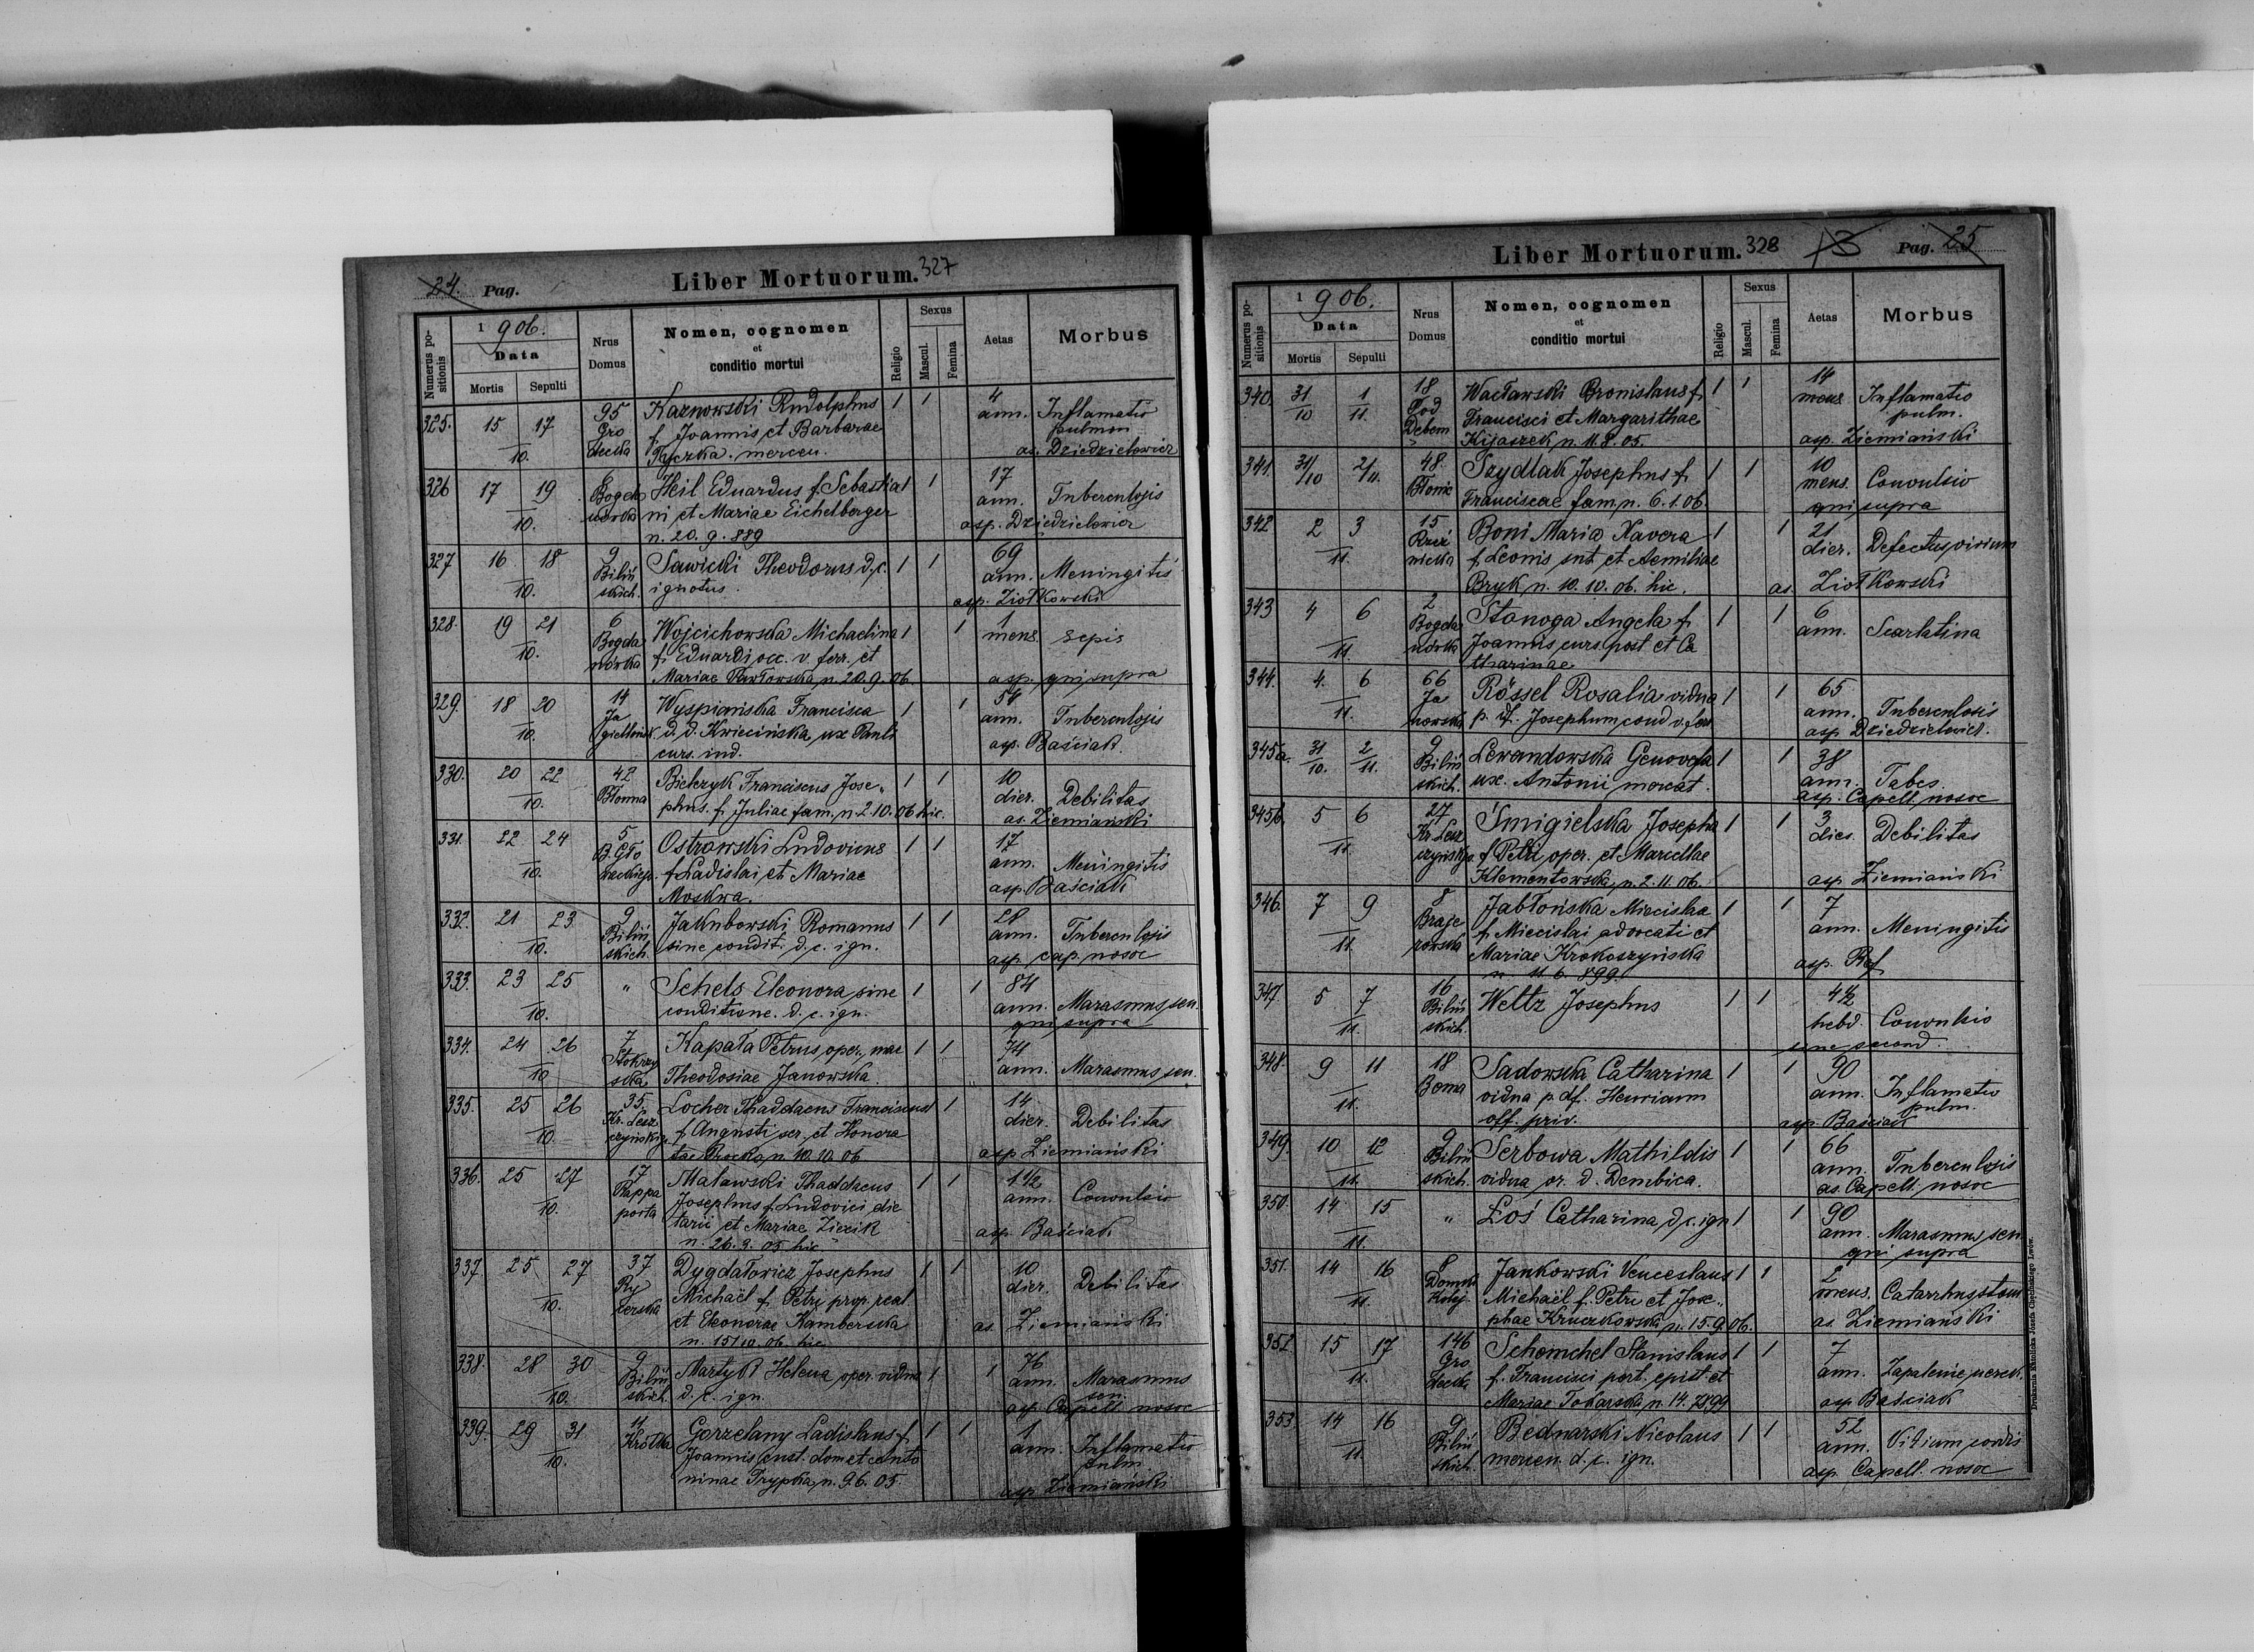 24. Pag.
Liber Mortuorum. 327
Numerus positionis
1906.
Data
Mortis
Sepulti
Nrus Domus
Nomen, cognomen
et
conditio mortui
Religio
Sexus
Mascul.
Femina
Aetas
Morbus
325. 15 17 95 Kaznowski Rudolphus 1 1 4
10. Gro f. Joannis et Barbarae ann. Inflamatio
decka mercen. pulmon
as. Dziedzielewicz
326 17 19 6 Heil Eduardus f. Sebastia 1 1 17
10. Bogda ni et Mariae Eichelberger ann. Tuberculosis
nówka n. 20. 9. 889 asp. Dziedzielewicz
327 16 18 9 Sawicki Theodorus d. c. 1 1 69
10. Biliń ignotus. ann. Meningitis
skich. asp. Ziołkowski
328. 19 21 6 Wojcichowska Michaelina 1 1 1
10. Bogda f. Eduardi occ. v. ferr. et mens sepis
nówka Mariae Pawłowska, n. 20. 9. 06. asp. qui supra
329. 18 20 14 Wyspiańska Francisca 1 1 54
10. Ja d. d. Kwiecińska, ux Pauli ann. Tuberculosis
giellońsk. curs. ind. asp. Baściak.
330. 20 22 42 Bielezyk Franciscus Jose„ 1 1 10
10. Błonna phus. f. Juliae fam. n. 2. 10. 06 hic. dier. Debilitas
as. Ziemiański
331. 22 24 5 Ostrowski Ludovicus 1 1 17
10. B. Gło f. Ladislai et Mariae ann. Meningitis
wackiego. Moskwa. asp. Baściak
332. 21 23 9 Jakubowski Romanus 1 1 28
10. Biliń sine condit. d. c. ign. ann. Tuberculosis
skich. asp. cap. nosoc
333. 23 25 " Schels Eleonora sine 1 1 84
10. conditione. d. c. ign. ann. Marasmus sen.
qui supra
334. 24 26 7 Kapała Petrus, oper., mar 1 1 74
10 Theodosiae Janowska. ann. Marasmus sen.
335. 25 26 35, Locher Thaddaeus Franciscus 1 1 14
10. Kr. Lesz f. Augusti ser. et Honora dier. Debilitas
czyńskig. tae Procka, n. 10. 10. 06 asp. Ziemiański
336. 25 27 17 Malawski Thaddaeus 1 1 1 1/2
10. Rappa Josephus f. Ludovici die ann. Convulsio
porta tarii et Mariae Zięcik
n. 26. 3. 05 hic asp. Baściak
337. 25 27 37 Dygdałowicz Josephus 1 1 10
10. Ry Michaël f. Petri prop. real dier. Debilitas
cerska et Eleonorae Kamberska as. Ziemiański
n. 15/10. 06. hic
338. 28 30 9 Martyk Helena, oper. vidua 1 1 76
10. Biliń d. c. ign. ann. Marasmus
skich. sen.
asp. Capell. nosoc
339. 29 31 11 Gorzelany Ladislaus f. 1 1 1
10. Krótka Joannis cust. dom et Anto ann. Inflamatio
ninae Trypka, n. 9. 6. 05. pulm
asp. Ziemiański
Liber Mortuorum. 328
13
Pag. 25
Numerus positionis
1906.
Data
Mortis
Sepulti
Nrus Domus
Nomen, cognomen
et
conditio mortui
Religio
Sexus
Mascul.
Femina
Aetas
Morbus
340. 31/10 1/11. 18 Wacławski Bronislaus f. 1 1 14
Pod Francisci et Margarithae mens Inflamatio
Dębem Kijaszek, n. 11. 8. 05. pulm.
asp. Ziemiański
341. 31/10 2/11. 48. Szydlak Josephus f. 1 1 10
Błonie Franciscae fam. n. 6. 1. 06. mens. Convulsio
qui supra
342 2 3 15 Boni Maria Xavera 1 1 21
11. Rzeź f. Leonis sut. et Aemiliae dier. Defectus virium
nicka Bryk, n. 10. 10. 06. hic. as. Ziołkowski
343 4 6 2 Stanoga Angela f. 1 1 6
11. Bogda Joannis, curs. post et Ca ann. Scarlatina
nówka tharinae
344. 4. 6 66 Rössel Rosalia vidua 1 1 65
11. Ja p. df. Josephum, cond. v. ferr ann. Tuberculosis
nowska asp. Dziedzielewicz.
345a. 31/10. 2/11. 9 Lewandowska Genovefa 1 1 38
Biliń ux. Antonii mercat. ann. Tabes.
skich. asp. Capell. nosoc
345b. 5 6 27 Śmigielska Josepha 1 1 3
11. Kr. Lesz f. Petri oper. et Marcellae dies. Debilitas
czyńskg. Klementowska, n. 2. 11. 06. asp. Ziemiański
346. 7 9 8 Jabłońska Miecislaa 1 1 7
11. Braje f. Miecislai advocati et ann. Meningitis
rowska Mariae Krokoszyńska asp. Raf
n. 11. 6. 899.
347. 5 7 16 Weltz Josephus 1 1 4 1/2
11. Biliń hebd. Convulsio
skich. sine second.
348. 9 11 18 Sadowska Catharina 1 1 90
11. Bema vidua p. df. Henricum ann. Inflamatio
off. priv. pulm.
asp. Baściak
349. 10 12 9 Serbowa Mathildis 1 1 66
11. Biliń vidua, or. d. Dembica. ann. Tuberculosis
skich. as. Capell. nosoc
350. 14 15 " Łoś Catharina d. c. ign 1 1 90
11. ann. Marasmus sen.
qui supra
351. 14 16 8 Jankowski Venceslaus 1 1 2
11. Domki Michaël f. Petri et Jose„ mens. Catarrhus stom
Kolej. phae Kruczkowska, n. 15. 9. 06. as. Ziemiański
352 15 17 146 Schomchel Stanislaus 1 1 7
11. Gro f. Francisci port. epist. et ann. Zapalenie nerek.
decka Mariae Tokarska, n. 14. 7. 899 asp. Baściak
353. 14 16 9 Bednarski Nicolaus 1 1 52
11. Biliń mercen. d. c. ign. ann. Vitium cordis
skich. asp. Capell. nosoc